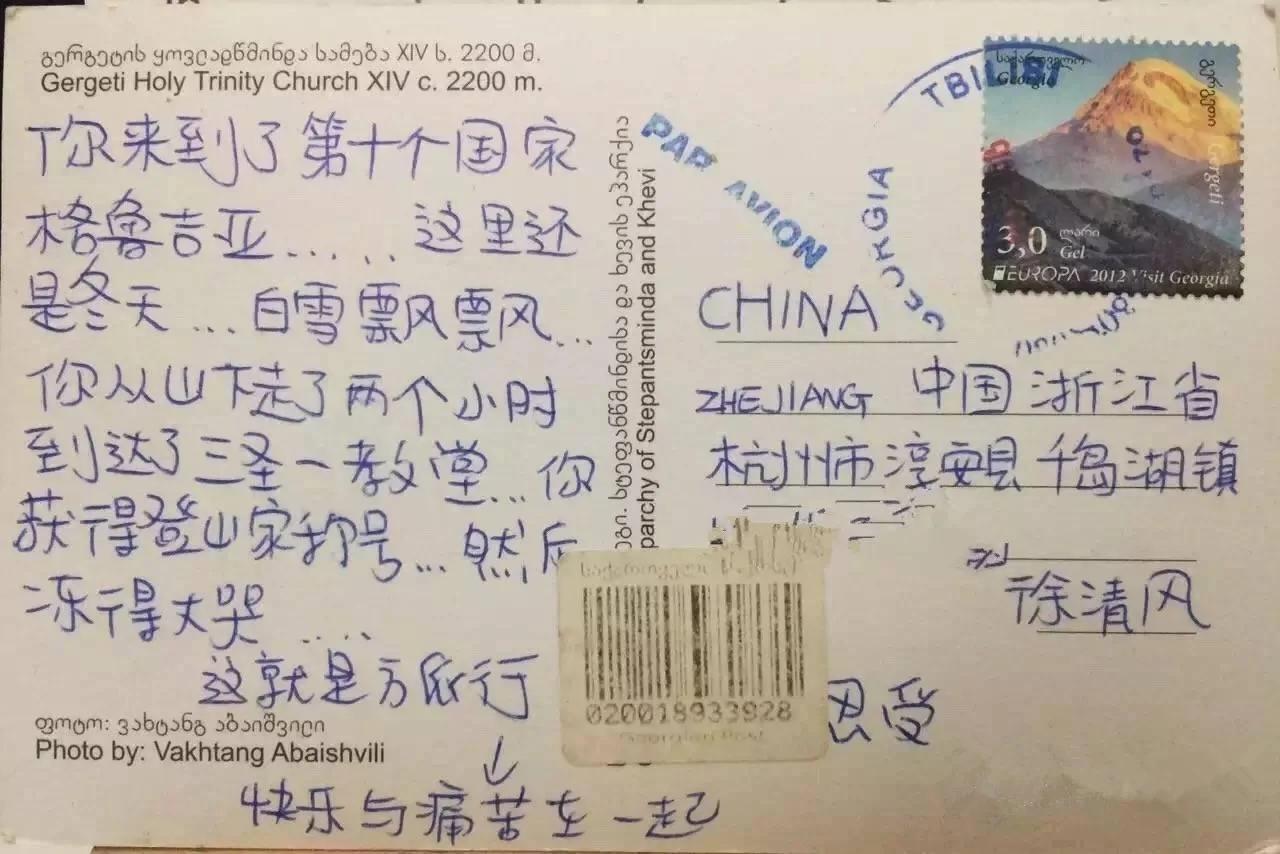 გერგეტის ყოვლადწმინდა სამება XIV ს. 2200 მ.
Gergeti Holy Trinity Church XIV c. 2200 m.
你来到了第十个国家
格鲁吉亚..... 这里还
是冬天...白雪飘飘...
你从山下走了两个小时
到达了三圣一教堂...你
获得登山家称号...然后
冻得大哭....
这就是 旅行
↓
快乐与痛苦在一起
ფოტო: ვახტანგ აბაიშვილი
Photo by: Vakhtang Abaishvili
სტეფანწმინდისა და ხევის ეპარქია
parchy of Stepantsminda and Khevi
PAR AVION
TBILISI
GEORGIA
საქართველო
Georgia
გერგეთი
Gergeti
3,0 ლარი
Gel
EUROPA 2012 Visit Georgia
CHINA
ZHEJIANG 中国浙江省
杭州市淳安县千岛湖镇
徐清风
020018933928
Georgian Post
受